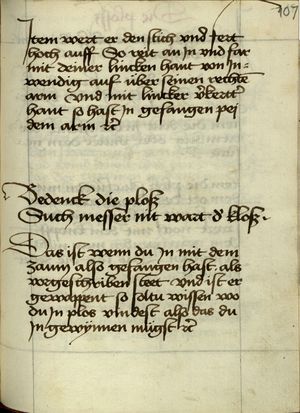 107
Item wert er den stich vnd fert
hoch auff So reit an in vnd far
mit deiner lincken hant von in-
wendig auf über seinen rechtē
arm Vnd mit lincker v̓kertt̓
hant so hast in gefangen pei
dem arm ꝛc̃
Bedenck die plosz
Such messer nit wart d̓ klosz
Das ist wenn du in mit dem
zaum also gefangen hast als
vorgeschriben steet vnd ist er
gewappent so soltu wissen wo
du in plos vindest also das du
in gewynnen mügst ꝛc̃